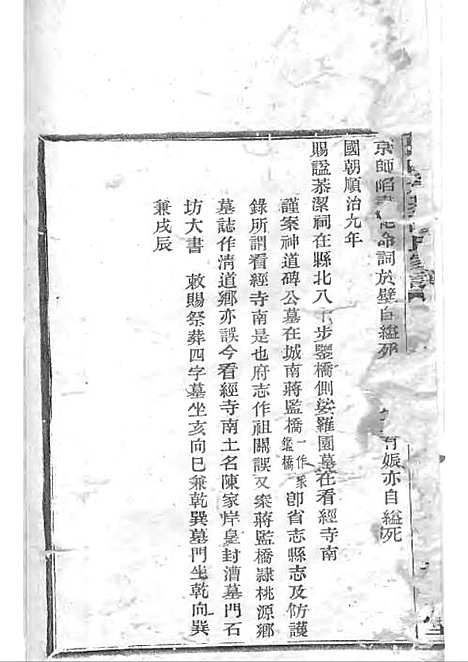 京師陷書絕命詞於壁自縊死 有娠亦自縊死
國朝順治九年
賜諡恭潔祠在縣北八十步鑿橋側娑羅園墓在看經寺南
謹案神道碑公墓在城南蔣監橋一作家鑑橋卽省志縣志及仿護
錄所謂看經寺南是也府志作祖關誤又案蔣監橋隷桃源鄉
墓誌作清道鄉亦誤今看經寺南土名陳家岸皇封漕墓門石
坊大書 敕賜祭葬四字墓坐亥向巳兼乾巽墓門坐乾向巽
兼戌辰